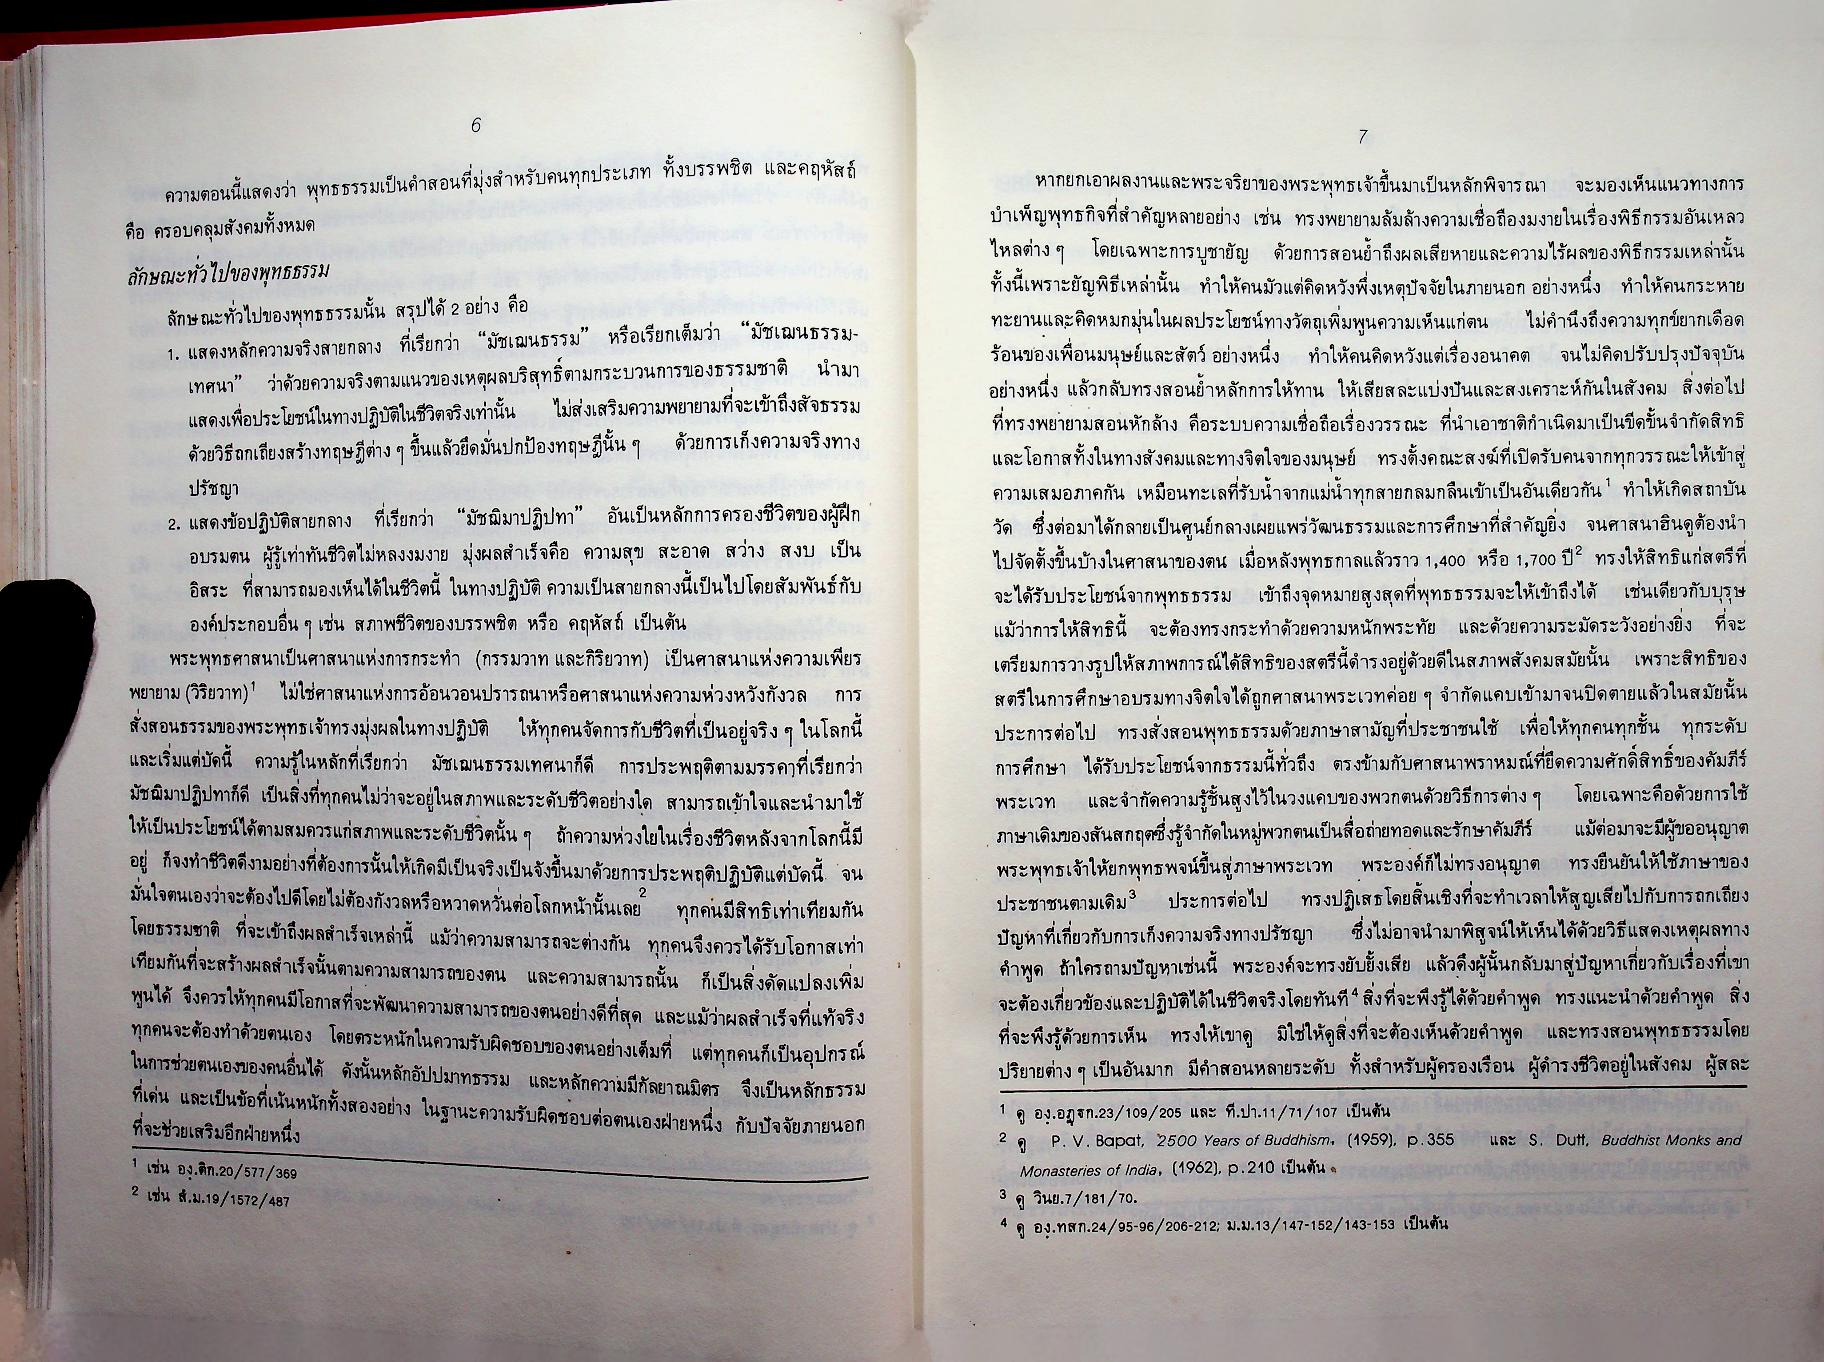 6
ความตอนนี้แสดงว่า พุทธธรรมเป็นคำสอนที่มุ่งสำหรับคนทุกประเภท ทั้งบรรพชิต และคฤหัสถ์
คือ ครอบคลุมสังคมทั้งหมด
ลักษณะทั่วไปของพุทธธรรม
ลักษณะทั่วไปของพุทธธรรมนั้น สรุปได้ 2 อย่าง คือ
1. แสดงหลักความจริงสายกลาง ที่เรียกว่า “มัชเฌนธรรม” หรือเรียกเต็มว่า “มัชเฌนธรรม-
เทศนา” ว่าด้วยความจริงตามแนวของเหตุผลบริสุทธิ์ตามกระบวนการของธรรมชาติ นำมา
แสดงเพื่อประโยชน์ในทางปฏิบัติในชีวิตจริงเท่านั้น ไม่ส่งเสริมความพยายามที่จะเข้าถึงสัจธรรม
ด้วยวิธีถกเถียงสร้างทฤษฎีต่าง ๆ ขึ้นแล้วยึดมั่นปกป้องทฤษฎีนั้น ๆ ด้วยการเก็งความจริงทาง
ปรัชญา
2. แสดงข้อปฏิบัติสายกลาง ที่เรียกว่า “มัชฌิมาปฏิปทา” อันเป็นหลักการครองชีวิตของผู้ฝึก
อบรมตน ผู้รู้เท่าทันชีวิตไม่หลงงมงาย มุ่งผลสำเร็จคือ ความสุข สะอาด สว่าง สงบ เป็น
อิสระ ที่สามารถมองเห็นได้ในชีวิตนี้ ในทางปฏิบัติ ความเป็นสายกลางนี้เป็นไปโดยสัมพันธ์กับ
องค์ประกอบอื่น ๆ เช่น สภาพชีวิตของบรรพชิต หรือ คฤหัสถ์ เป็นต้น
พระพุทธศาสนาเป็นศาสนาแห่งการกระทำ (กรรมวาท และกิริยวาท) เป็นศาสนาแห่งความเพียร
พยายาม (วิริยวาท)¹ ไม่ใช่ศาสนาแห่งการอ้อนวอนปรารถนาหรือศาสนาแห่งความห่วงหวังกังวล การ
สั่งสอนธรรมของพระพุทธเจ้าทรงมุ่งผลในทางปฏิบัติ ให้ทุกคนจัดการกับชีวิตที่เป็นอยู่จริง ๆ ในโลกนี้
และเริ่มแต่บัดนี้ ความรู้ในหลักที่เรียกว่า มัชเฌนธรรมเทศนาก็ดี การประพฤติตามมรรคาที่เรียกว่า
มัชฌิมาปฏิปทาก็ดี เป็นสิ่งที่ทุกคนไม่ว่าจะอยู่ในสภาพและระดับชีวิตอย่างใด สามารถเข้าใจและนำมาใช้
ให้เป็นประโยชน์ได้ตามสมควรแก่สภาพและระดับชีวิตนั้น ๆ ถ้าความห่วงใยในเรื่องชีวิตหลังจากโลกนี้มี
อยู่ ก็จงทำชีวิตดีงามอย่างที่ต้องการนั้นให้เกิดมีเป็นจริงเป็นจังขึ้นมาด้วยการประพฤติปฏิบัติแต่บัดนี้ จน
มั่นใจตนเองว่าจะต้องไปดีโดยไม่ต้องกังวลหรือหวาดหวั่นต่อโลกหน้านั้นเลย² ทุกคนมีสิทธิเท่าเทียมกัน
โดยธรรมชาติ ที่จะเข้าถึงผลสำเร็จเหล่านี้ แม้ว่าความสามารถจะต่างกัน ทุกคนจึงควรได้รับโอกาสเท่า
เทียมกันที่จะสร้างผลสำเร็จนั้นตามความสามารถของตน และความสามารถนั้น ก็เป็นสิ่งดัดแปลงเพิ่ม
พูนได้ จึงควรให้ทุกคนมีโอกาสที่จะพัฒนาความสามารถของตนอย่างดีที่สุด และแม้ว่าผลสำเร็จที่แท้จริง
ทุกคนจะต้องทำด้วยตนเอง โดยตระหนักในความรับผิดชอบของตนอย่างเต็มที่ แต่ทุกคนก็เป็นอุปกรณ์
ในการช่วยตนเองของคนอื่นได้ ดังนั้นหลักอัปปมาทธรรม และหลักความมีกัลยาณมิตร จึงเป็นหลักธรรม
ที่เด่น และเป็นข้อที่เน้นหนักทั้งสองอย่าง ในฐานะความรับผิดชอบต่อตนเองฝ่ายหนึ่ง กับปัจจัยภายนอก
ที่จะช่วยเสริมอีกฝ่ายหนึ่ง
¹ เช่น องฺ.ติก.20/577/369
² เช่น สํ.ม.19/1572/487
7
หากยกเอาผลงานและพระจริยาของพระพุทธเจ้าขึ้นมาเป็นหลักพิจารณา จะมองเห็นแนวทางการ
บำเพ็ญพุทธกิจที่สำคัญหลายอย่าง เช่น ทรงพยายามล้มล้างความเชื่อถืองมงายในเรื่องพิธีกรรมอันเหลว
ไหลต่าง ๆ โดยเฉพาะการบูชายัญ ด้วยการสอนย้ำถึงผลเสียหายและความไร้ผลของพิธีกรรมเหล่านั้น
ทั้งนี้เพราะยัญพิธีเหล่านั้น ทำให้คนมัวแต่คิดหวังพึ่งเหตุปัจจัยในภายนอก อย่างหนึ่ง ทำให้คนกระหาย
ทะยานและคิดหมกมุ่นในผลประโยชน์ทางวัตถุเพิ่มพูนความเห็นแก่ตน ไม่คำนึงถึงความทุกข์ยากเดือด
ร้อนของเพื่อนมนุษย์และสัตว์ อย่างหนึ่ง ทำให้คนคิดหวังแต่เรื่องอนาคต จนไม่คิดปรับปรุงปัจจุบัน
อย่างหนึ่ง แล้วกลับทรงสอนย้ำหลักการให้ทาน ให้เสียสละแบ่งปันและสงเคราะห์กันในสังคม สิ่งต่อไป
ที่ทรงพยายามสอนหักล้าง คือระบบความเชื่อถือเรื่องวรรณะ ที่นำเอาชาติกำเนิดมาเป็นขีดขั้นจำกัดสิทธิ
และโอกาสทั้งในทางสังคมและทางจิตใจของมนุษย์ ทรงตั้งคณะสงฆ์ที่เปิดรับคนจากทุกวรรณะให้เข้าสู่
ความเสมอภาคกัน เหมือนทะเลที่รับน้ำจากแม่น้ำทุกสายกลมกลืนเข้าเป็นอันเดียวกัน¹ ทำให้เกิดสถาบัน
วัด ซึ่งต่อมาได้กลายเป็นศูนย์กลางเผยแพร่วัฒนธรรมและการศึกษาที่สำคัญยิ่ง จนศาสนาฮินดูต้องนำ
ไปจัดตั้งขึ้นบ้างในศาสนาของตน เมื่อหลังพุทธกาลแล้วราว 1,400 หรือ 1,700 ปี² ทรงให้สิทธิแก่สตรีที่
จะได้รับประโยชน์จากพุทธธรรม เข้าถึงจุดหมายสูงสุดที่พุทธธรรมจะให้เข้าถึงได้ เช่นเดียวกับบุรุษ
แม้ว่าการให้สิทธินี้ จะต้องทรงกระทำด้วยความหนักพระทัย และด้วยความระมัดระวังอย่างยิ่ง ที่จะ
เตรียมการวางรูปให้สภาพการณ์ได้สิทธิของสตรีนี้ดำรงอยู่ด้วยดีในสภาพสังคมสมัยนั้น เพราะสิทธิของ
สตรีในการศึกษาอบรมทางจิตใจได้ถูกศาสนาพระเวทค่อย ๆ จำกัดแคบเข้ามาจนปิดตายแล้วในสมัยนั้น
ประการต่อไป ทรงสั่งสอนพุทธธรรมด้วยภาษาสามัญที่ประชาชนใช้ เพื่อให้ทุกคนทุกชั้น ทุกระดับ
การศึกษา ได้รับประโยชน์จากธรรมนี้ทั่วถึง ตรงข้ามกับศาสนาพราหมณ์ที่ยึดความศักดิ์สิทธิ์ของคัมภีร์
พระเวท และจำกัดความรู้ชั้นสูงไว้ในวงแคบของพวกตนด้วยวิธีการต่าง ๆ โดยเฉพาะคือด้วยการใช้
ภาษาเดิมของสันสกฤตซึ่งรู้จำกัดในหมู่พวกตนเป็นสื่อถ่ายทอดและรักษาคัมภีร์ แม้ต่อมาจะมีผู้ขออนุญาต
พระพุทธเจ้าให้ยกพุทธพจน์ขึ้นสู่ภาษาพระเวท พระองค์ก็ไม่ทรงอนุญาต ทรงยืนยันให้ใช้ภาษาของ
ประชาชนตามเดิม³ ประการต่อไป ทรงปฏิเสธโดยสิ้นเชิงที่จะทำเวลาให้สูญเสียไปกับการถกเถียง
ปัญหาที่เกี่ยวกับการเก็งความจริงทางปรัชญา ซึ่งไม่อาจนำมาพิสูจน์ให้เห็นได้ด้วยวิธีแสดงเหตุผลทาง
คำพูด ถ้าใครถามปัญหาเช่นนี้ พระองค์จะทรงยับยั้งเสีย แล้วดึงผู้นั้นกลับมาสู่ปัญหาเกี่ยวกับเรื่องที่เขา
จะต้องเกี่ยวข้องและปฏิบัติได้ในชีวิตจริงโดยทันที⁴ สิ่งที่จะพึงรู้ได้ด้วยคำพูด ทรงแนะนำด้วยคำพูด สิ่ง
ที่จะพึงรู้ด้วยการเห็น ทรงให้เขาดู มิใช่ให้ดูสิ่งที่จะต้องเห็นด้วยคำพูด และทรงสอนพุทธธรรมโดย
ปริยายต่าง ๆ เป็นอันมาก มีคำสอนหลายระดับ ทั้งสำหรับผู้ครองเรือน ผู้ดำรงชีวิตอยู่ในสังคม ผู้สละ
¹ ดู องฺ.อฏฺฐก.23/109/205 และ ที.ปา.11/71/107 เป็นต้น
² ดู P. V. Bapat, 2500 Years of Buddhism, (1959), p.355 และ S. Dutt, Buddhist Monks and
Monasteries of India, (1962), p.210 เป็นต้น
³ ดู วินย.7/181/70.
⁴ ดู องฺ.ทสก.24/95-96/206-212; ม.ม.13/147-152/143-153 เป็นต้น